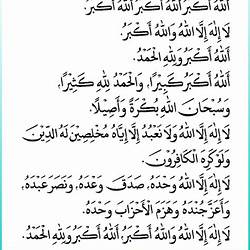 اَللهُ أَكْبَرُ اَللهُ أَكْبَرُ اَللهُ أَكْبَرُ.
لَا إِلٰهَ إِلَّا اللهُ وَاللهُ أَكْبَرُ.
اَللهُ أَكْبَرُ وَلِلّٰهِ الْحَمْدُ.
اَللهُ أَكْبَرُ كَبِيْرًا، وَالْحَمْدُ لِلّٰهِ كَثِيْرًا،
وَسُبْحَانَ اللهِ بُكْرَةً وَأَصِيْلًا.
لَا إِلٰهَ إِلَّا اللهُ وَلَا نَعْبُدُ إِلَّا إِيَّاهُ مُخْلِصِيْنَ لَهُ الدِّيْنَ
وَلَوْ كَرِهَ الْكَافِرُوْنَ.
لَا إِلٰهَ إِلَّا اللهُ وَحْدَهُ، صَدَقَ وَعْدَهُ، وَنَصَرَ عَبْدَهُ،
وَأَعَزَّ جُنْدَهُ وَهَزَمَ الْأَحْزَابَ وَحْدَهُ.
لَا إِلٰهَ إِلَّا اللهُ وَاللهُ أَكْبَرُ، اَللهُ أَكْبَرُ وَلِلّٰهِ الْحَمْدُ.